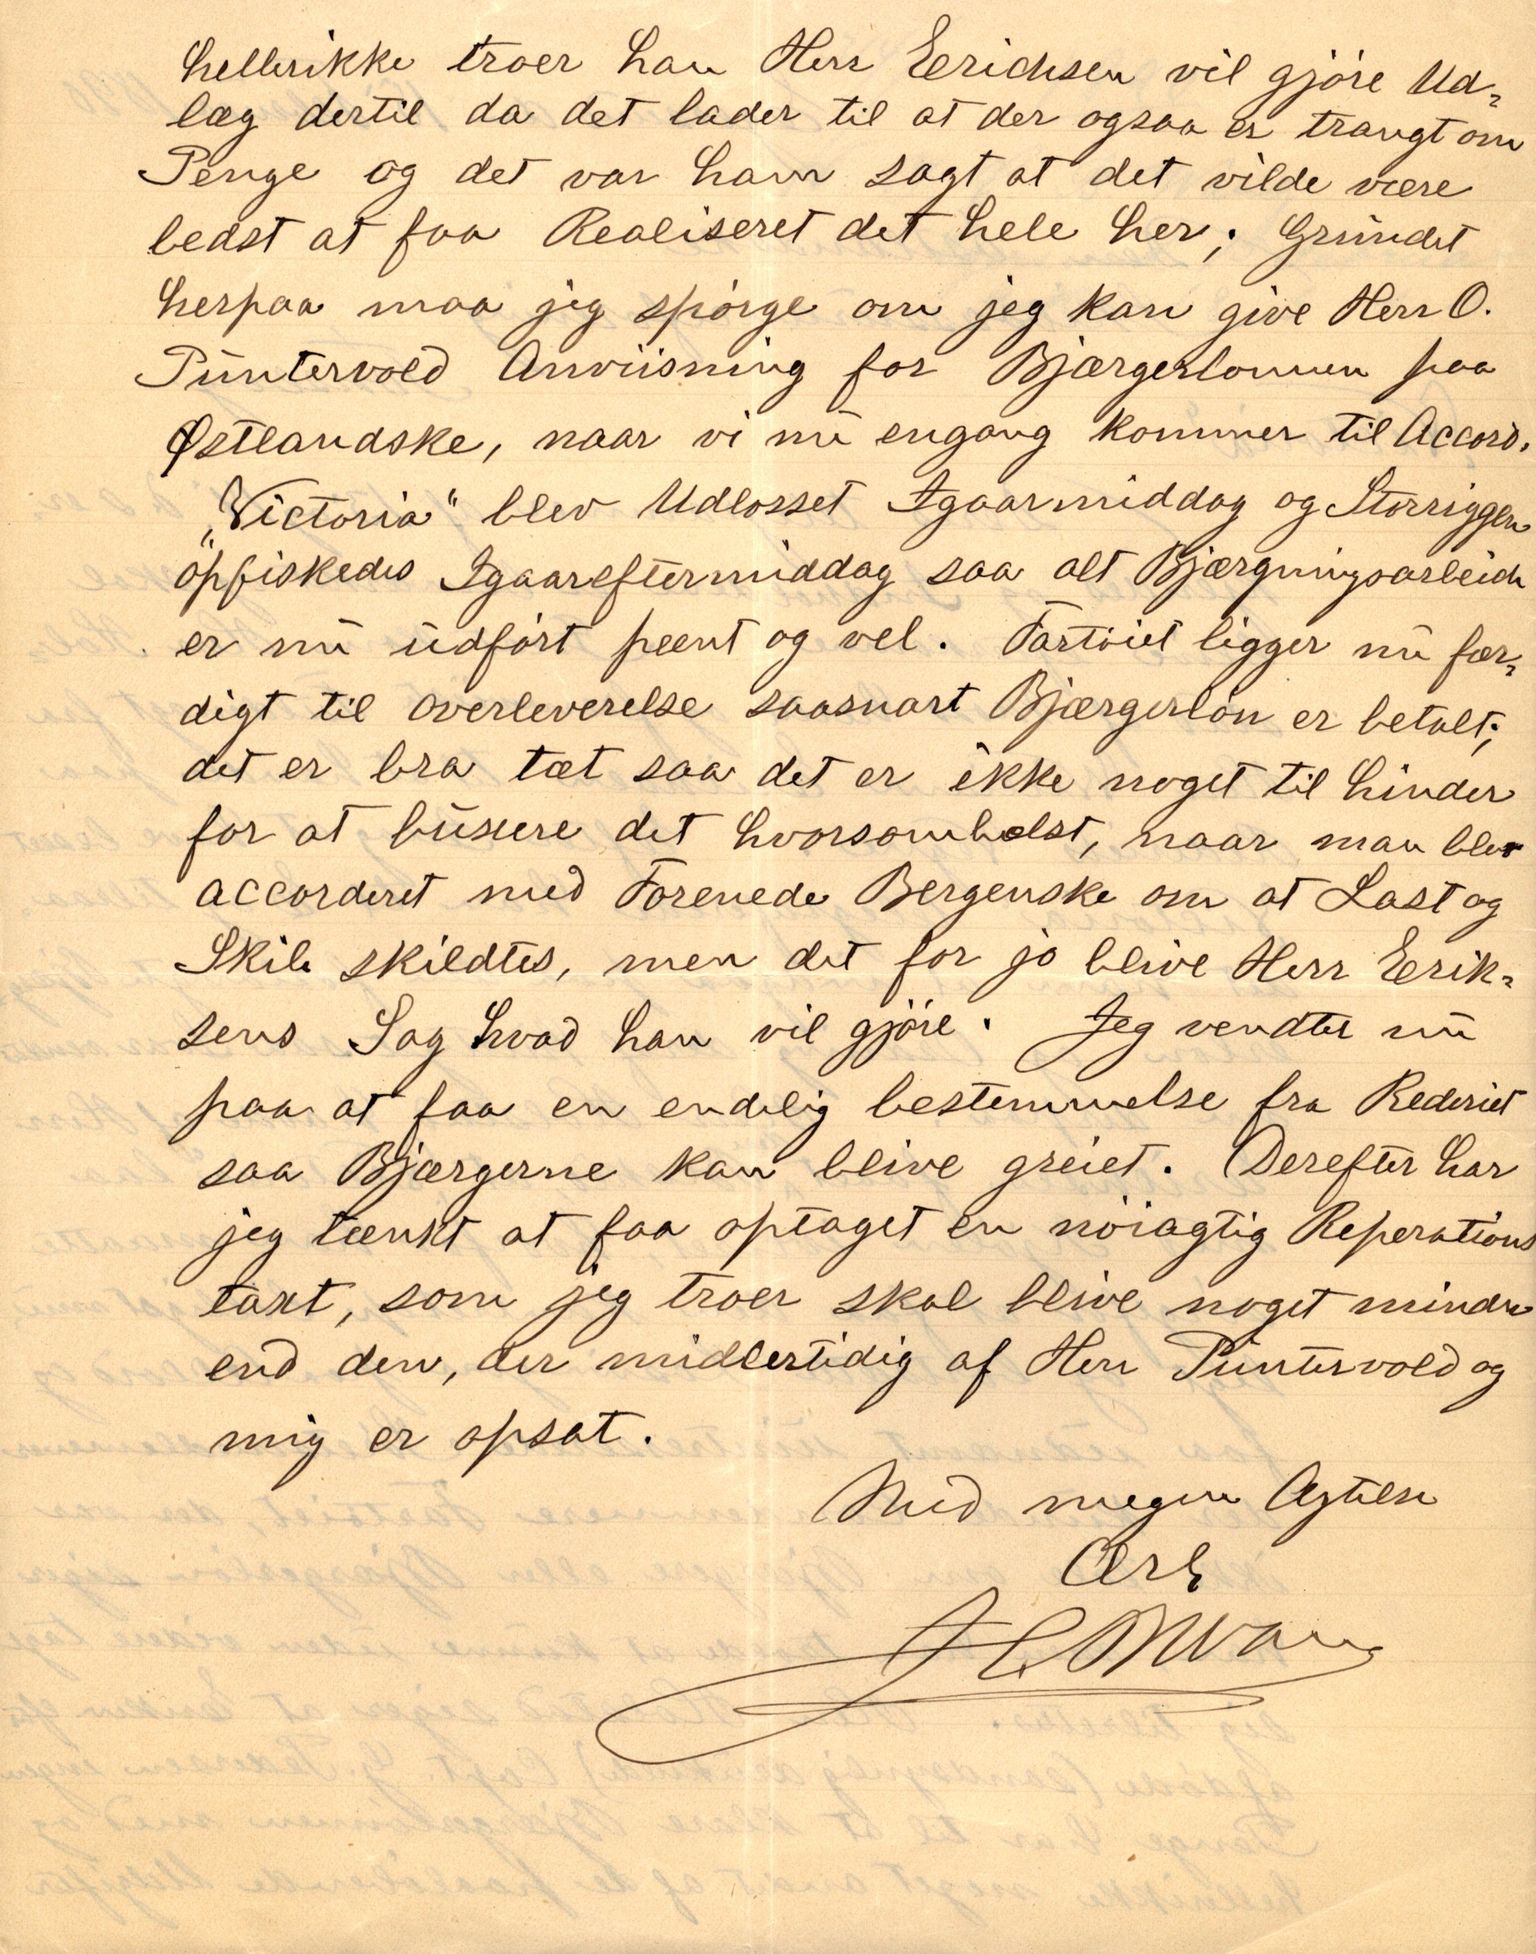 hellerikke troer han Herr Eerichsen vil gjöre Ud-
læg dertil da det lader til at der ogsaa er trangt om
Penge og det var ham sagt at det vilde være
bedst at faa Realiseret det hele her; Grundet
herpaa maa jeg spörge om jeg kan give Herr O.
Puntervold Anviisning for Bjærgerlönnen paa
Østlandske, naar vi nu engang kommer til Accord.
"Victoria" blev Udlosset Igaarmiddag og Storriggen
opfiskedes Igaareftermiddag saa alt Bjærgningsarbeide
er nu udfört peent og vel. Fartöiet ligger nu fær-
digt til overleverelse saasnart Bjærgerlön er betalt;
det er bra tæt saa det er ikke noget til hinder
for at buxere det hvorsomhelst, naar man blev
accorderet med Forenede Bergenske om at Last og
Skib skildtes, men det for jo blive Herr Eerik-
sens Sag hvad han vil gjöre. Jeg vendter nu
paa at faa en endelig bestemmelse fra Rederiet
saa Bjærgerne kan blive greiet. Derefter har
jeg tænkt at faa optaget en nöiagtig Reperations
taxt, som jeg troer skal blive noget mindre
end den, der midlertidig af Herr Puntervold og
mig er opsat.
Med megen Agtelse
Ærb